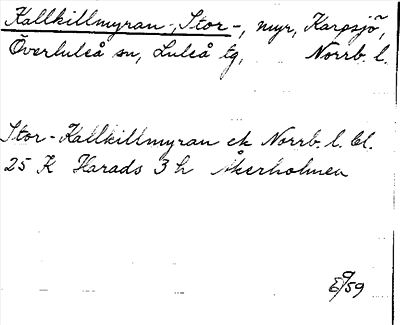 Kallkillmyran-, Stor-, myr, Karpsjö,
Överluleå sn, Luleå tg, Norrb. l.
Stor-Kallkillmyran ek Norrb. l. bl.
25 K Harads 3 h Åkerholmen